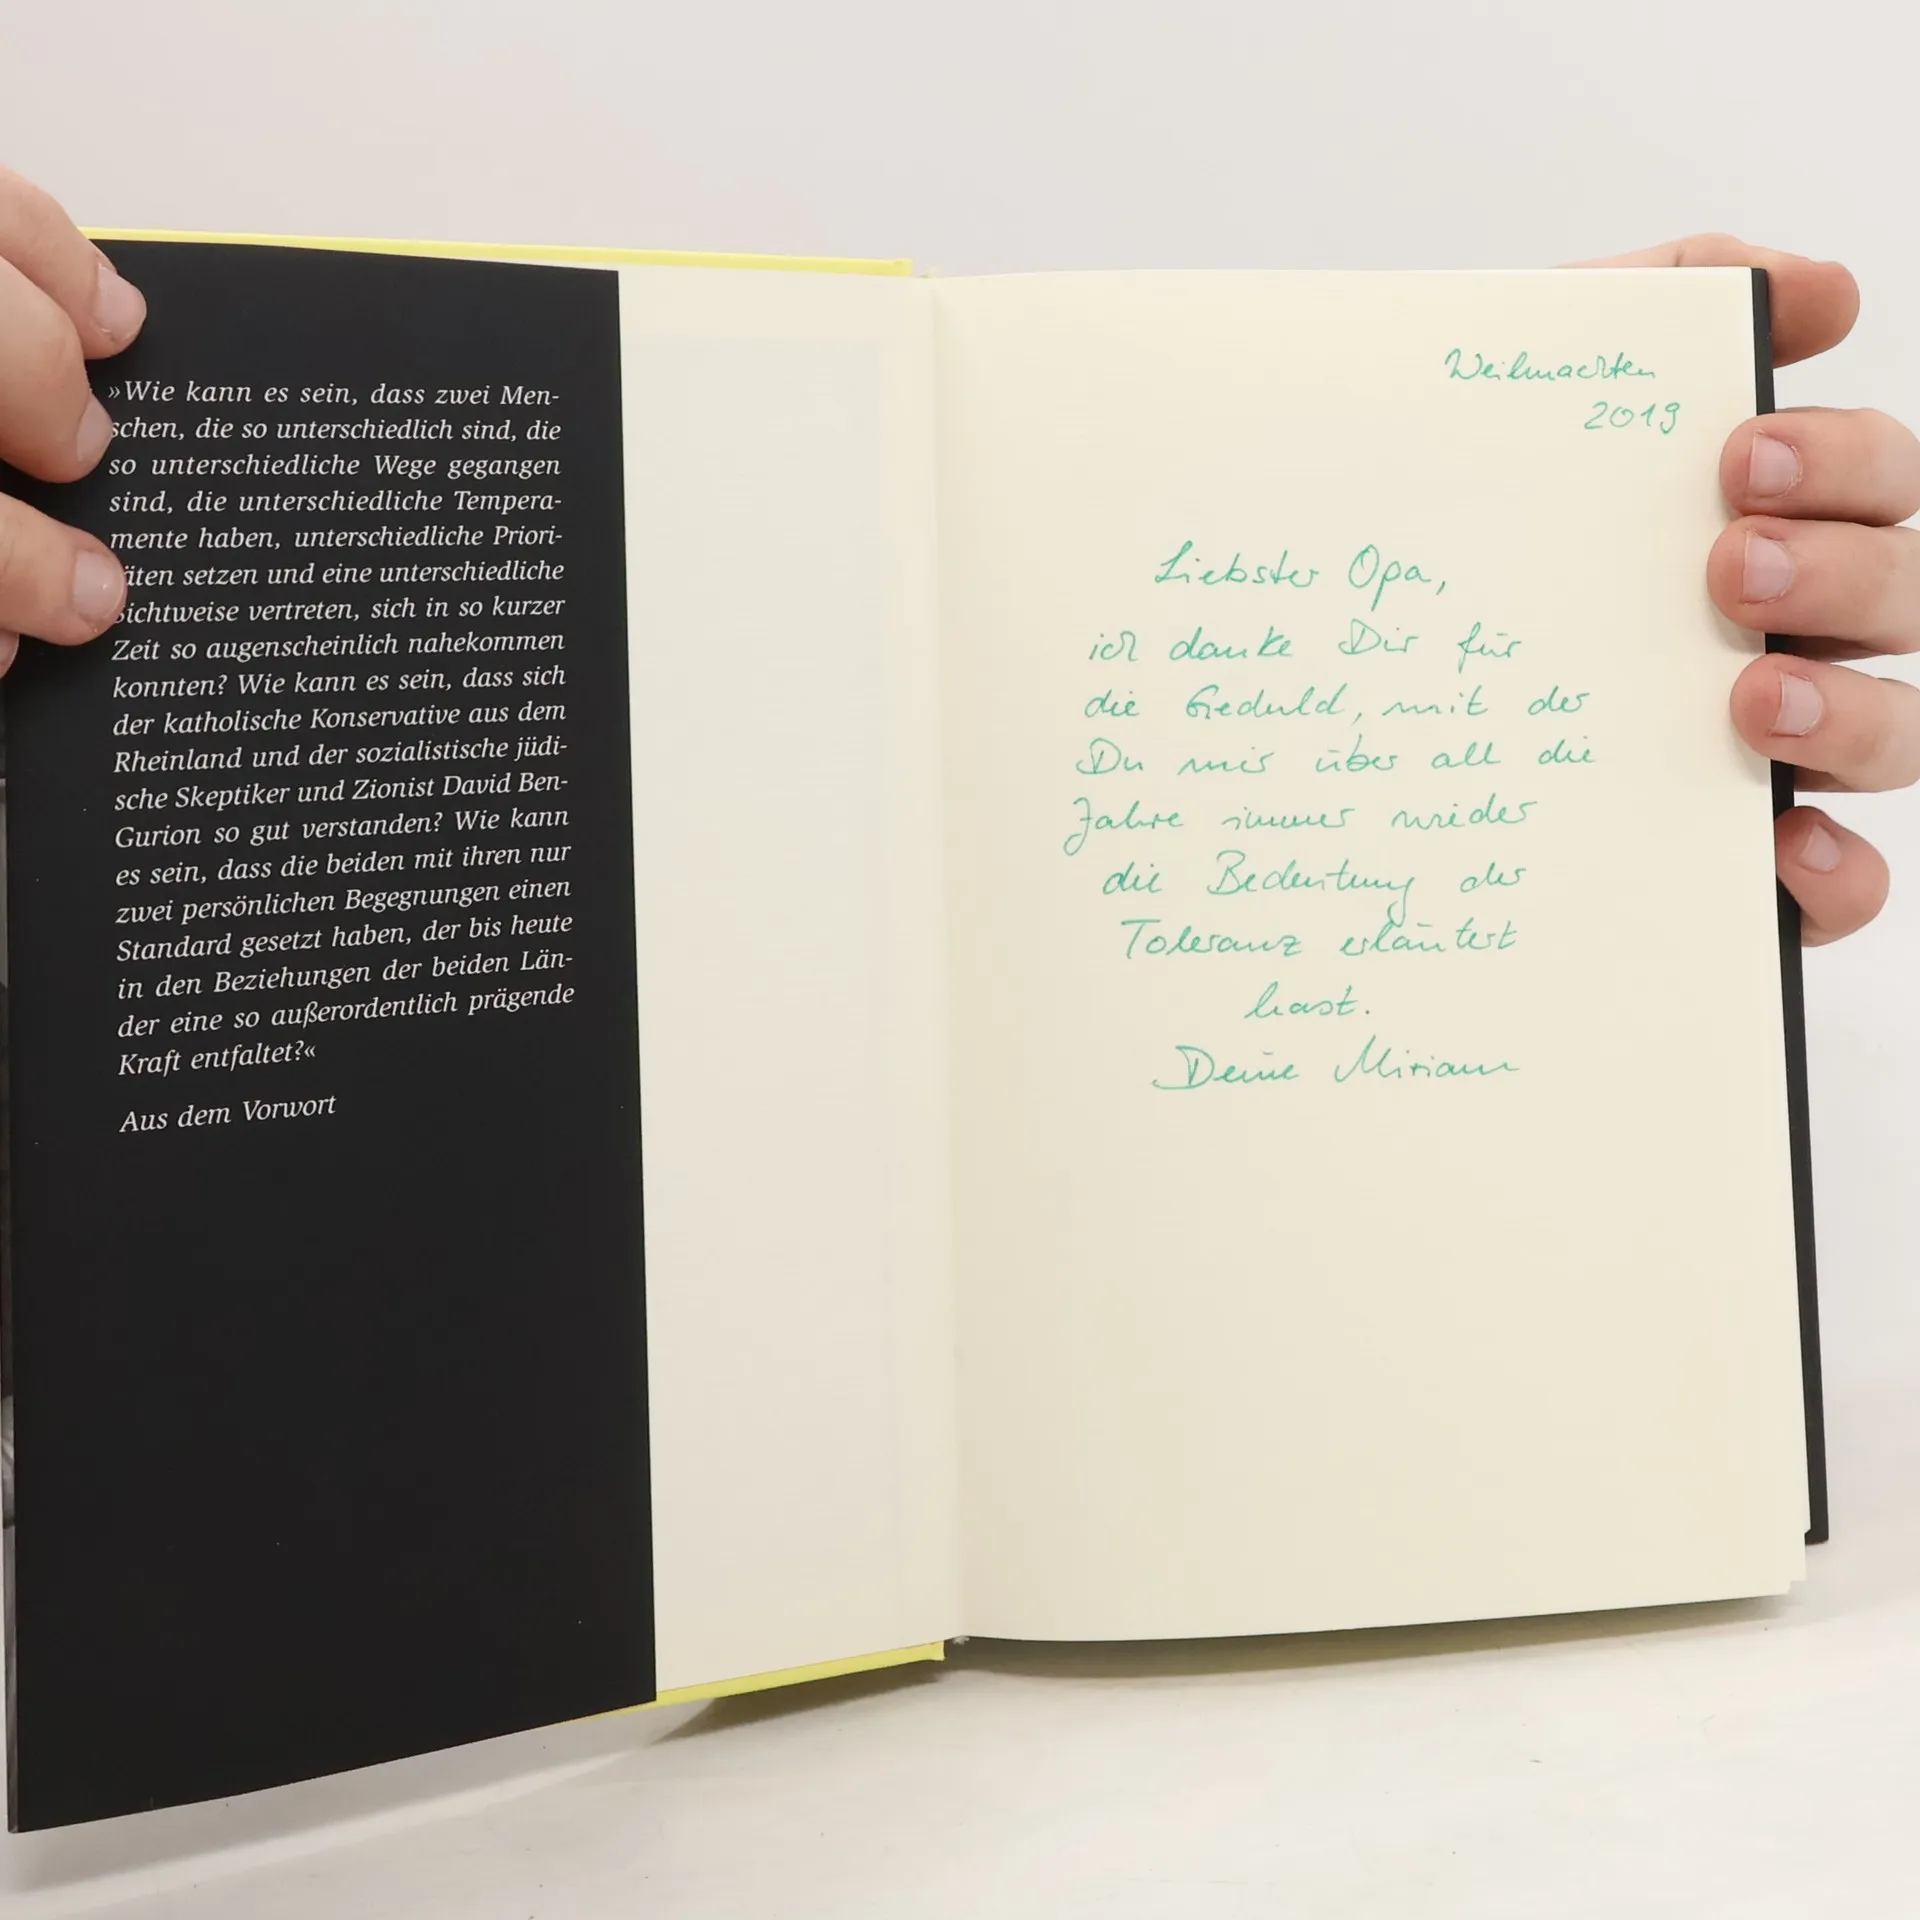 »Wie kann es sein, dass zwei Men-
schen, die so unterschiedlich sind, die
so unterschiedliche Wege gegangen
sind, die unterschiedliche Tempera-
mente haben, unterschiedliche Priori-
täten setzen und eine unterschiedliche
Sichtweise vertreten, sich in so kurzer
Zeit so augenscheinlich nahekommen
konnten? Wie kann es sein, dass sich
der katholische Konservative aus dem
Rheinland und der sozialistische jüdi-
sche Skeptiker und Zionist David Ben-
Gurion so gut verstanden? Wie kann
es sein, dass die beiden mit ihren nur
zwei persönlichen Begegnungen einen
Standard gesetzt haben, der bis heute
in den Beziehungen der beiden Län-
der eine so außerordentlich prägende
Kraft entfaltet?«
Aus dem Vorwort
Weihnachten
2019
Liebster Opa,
ich danke Dir für
die Geduld, mit der
Du mir über all die
Jahre immer wieder
die Bedeutung der
Toleranz erläutert
hast.
Deine Miriam